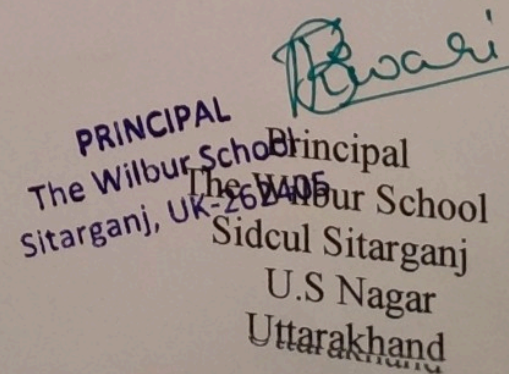 PRINCIPAL
The Wilbur School
Sitarganj, UK-262405
Principal
The Wilbur School
Sidcul Sitarganj
U.S Nagar
Uttarakhand